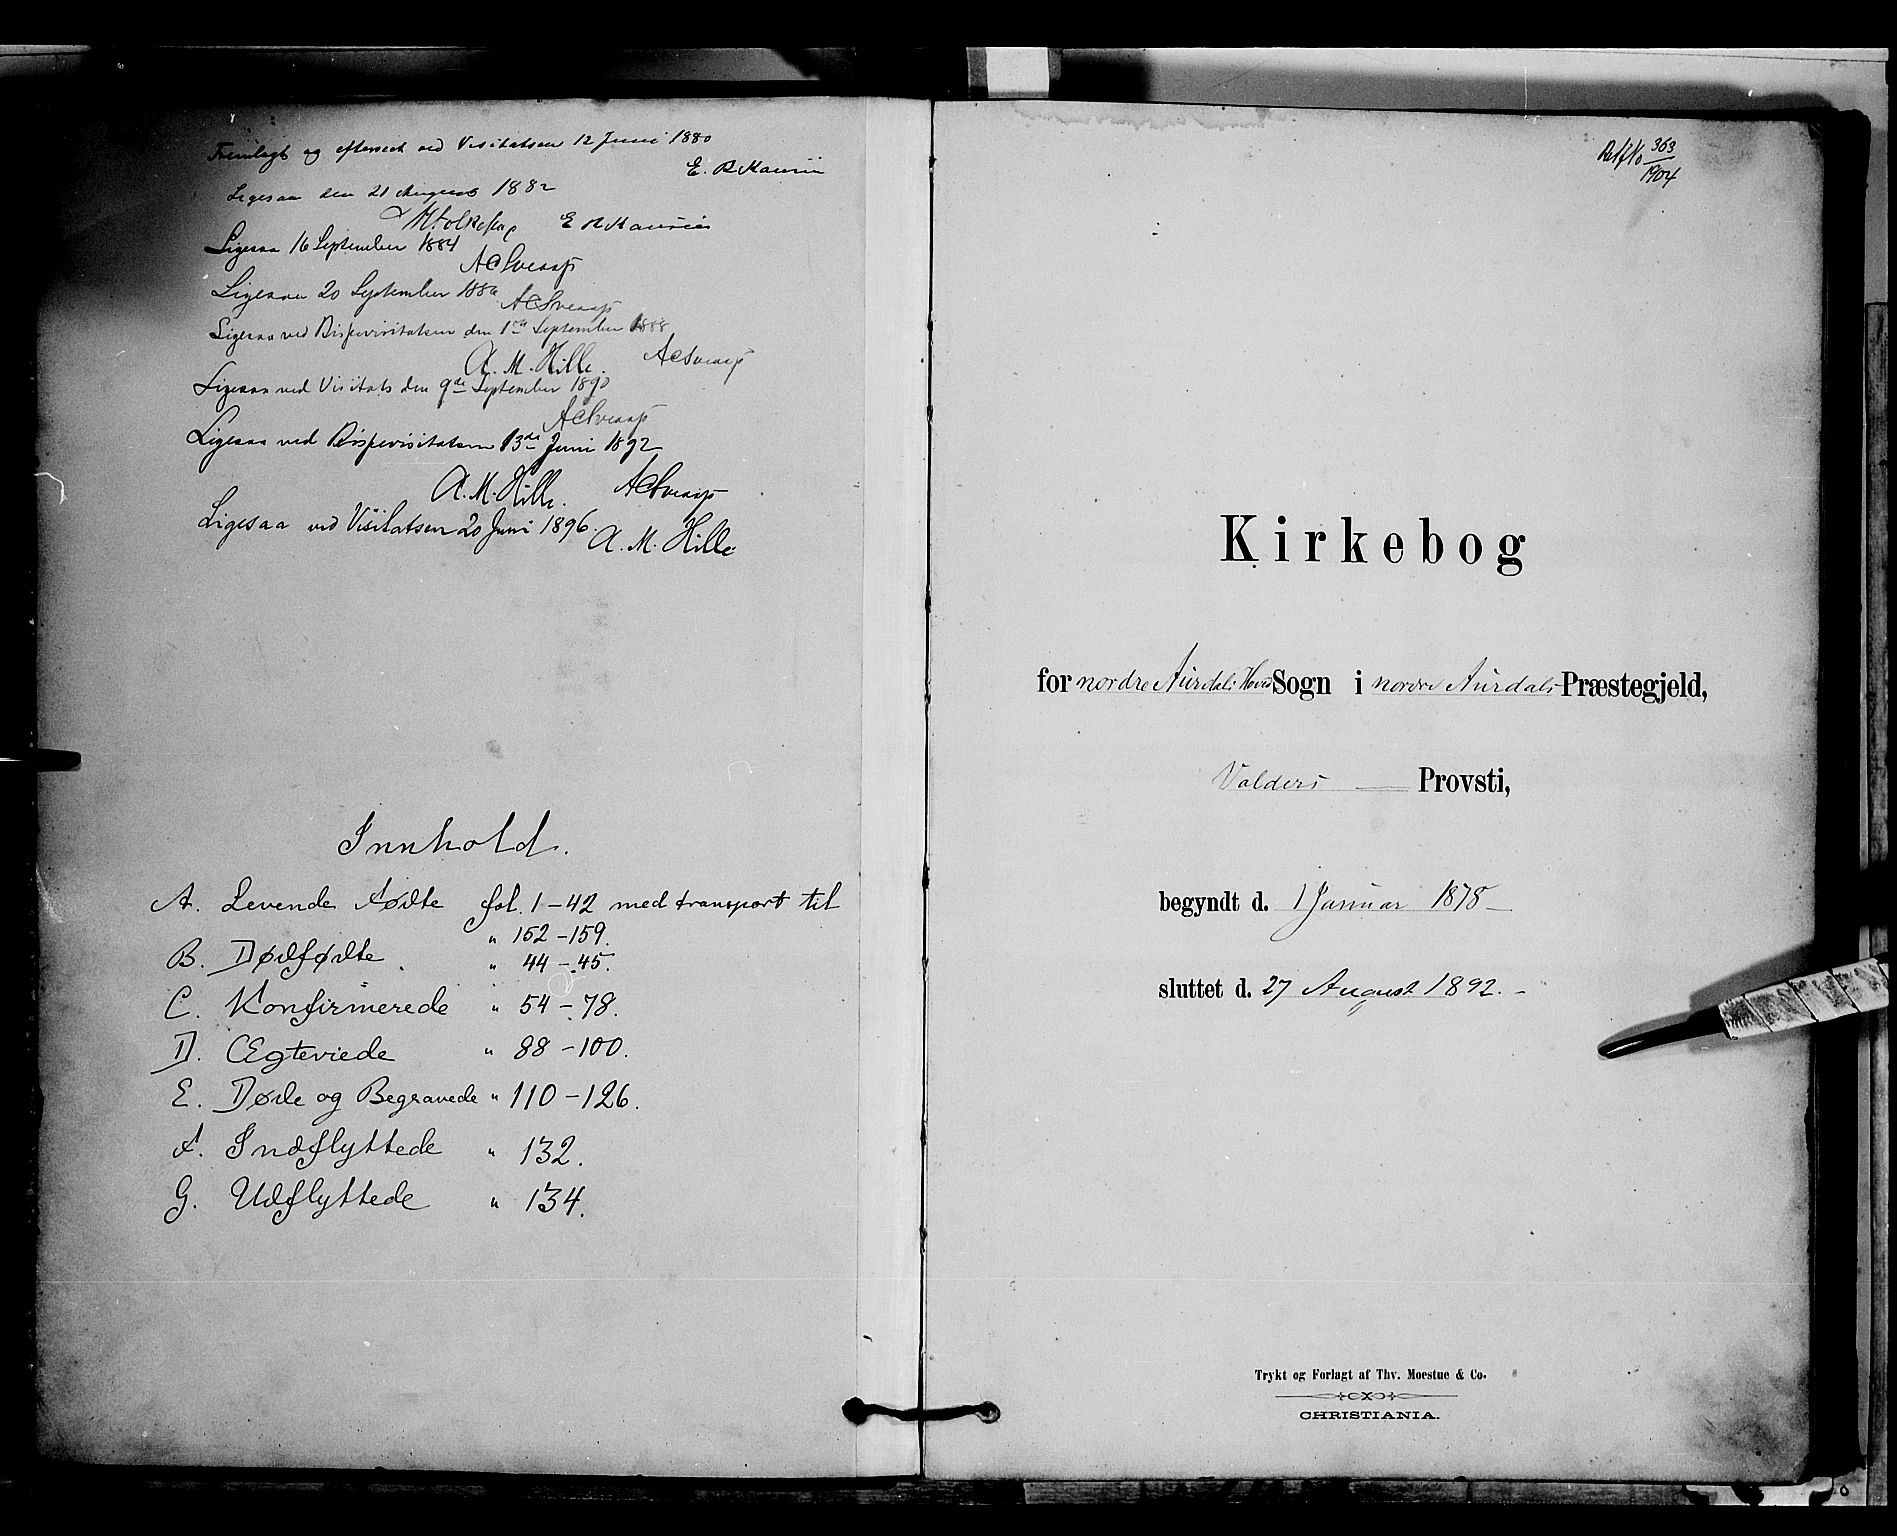 Fremlagt og efterseet ved Visitatsen 12 Juni 1880
E. R Kaurin
Ligesaa den 21 August 1882
E R Kaurin
Ligesaa 16 September 1884
Ligesaa 20 September 1886
Ligesaa ved Bispevisitatsen den 1ste September 1888
A. M. Hille.
Ligesaa ved Visitats den 9de September 1890
Ligesaa ved Bispevisitatsen 13de Juni 1892
A. M. Hille.
Ligesaa ved Visitatsen 20 Juni 1896.
A. M. Hille
Innhold.
A. Levende Fødte fol. 1-42 med transport til
" 152-159.
B. Dødfødte " 44-45.
C. Konfirmerede " 54-78.
D. Ægteviede " 88-100.
E. Døde og Begravede " 110-126.
F. Indflyttede " 132.
G. Udflyttede " 134.
363
1904
Kirkebog
for nordre Aurdals Hoved Sogn i nordre Aurdals Præstegjeld,
Valders Provsti,
begyndt d. 1 Januar 1878
sluttet d. 27 August 1892.
Trykt og Forlagt af Thv. Moestue & Co.
CHRISTIANIA.